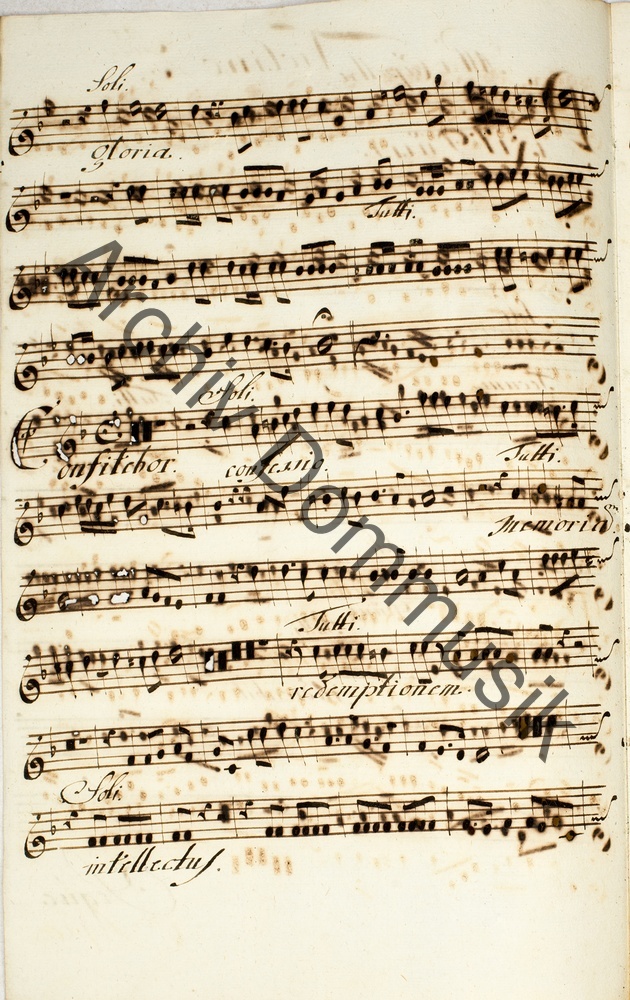 Soli.
gloria.
Tutti.
Soli.
Confitebor. confessio. Tutti.
memoria
Tutti.
redemptionem.
Soli.
intellectus.
Archiv Dommusik